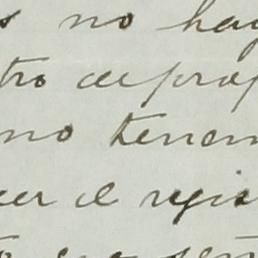 s no hay
tro de prop
no tenem
cer el regis